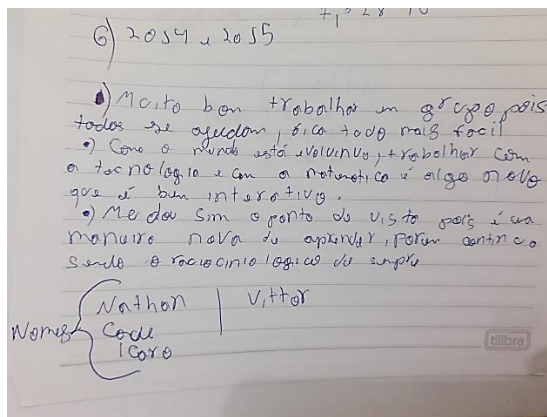 6) 2014 e 2015
•) Muito bom trabalhar em grupo pois
todos se ajudam, fica tudo mais facil
•) Como o mundo está evoluinvo, trabalhar com
a tecnologia e com a matematica é algo novo
que é bem interativo.
•) Mudou sim o ponto de vista pois é uma
maneira nova de aprender, porem continua
sendo o raciocinio logico de sempre
Nomes
Nathan | Vittor
Icaro
tilibra